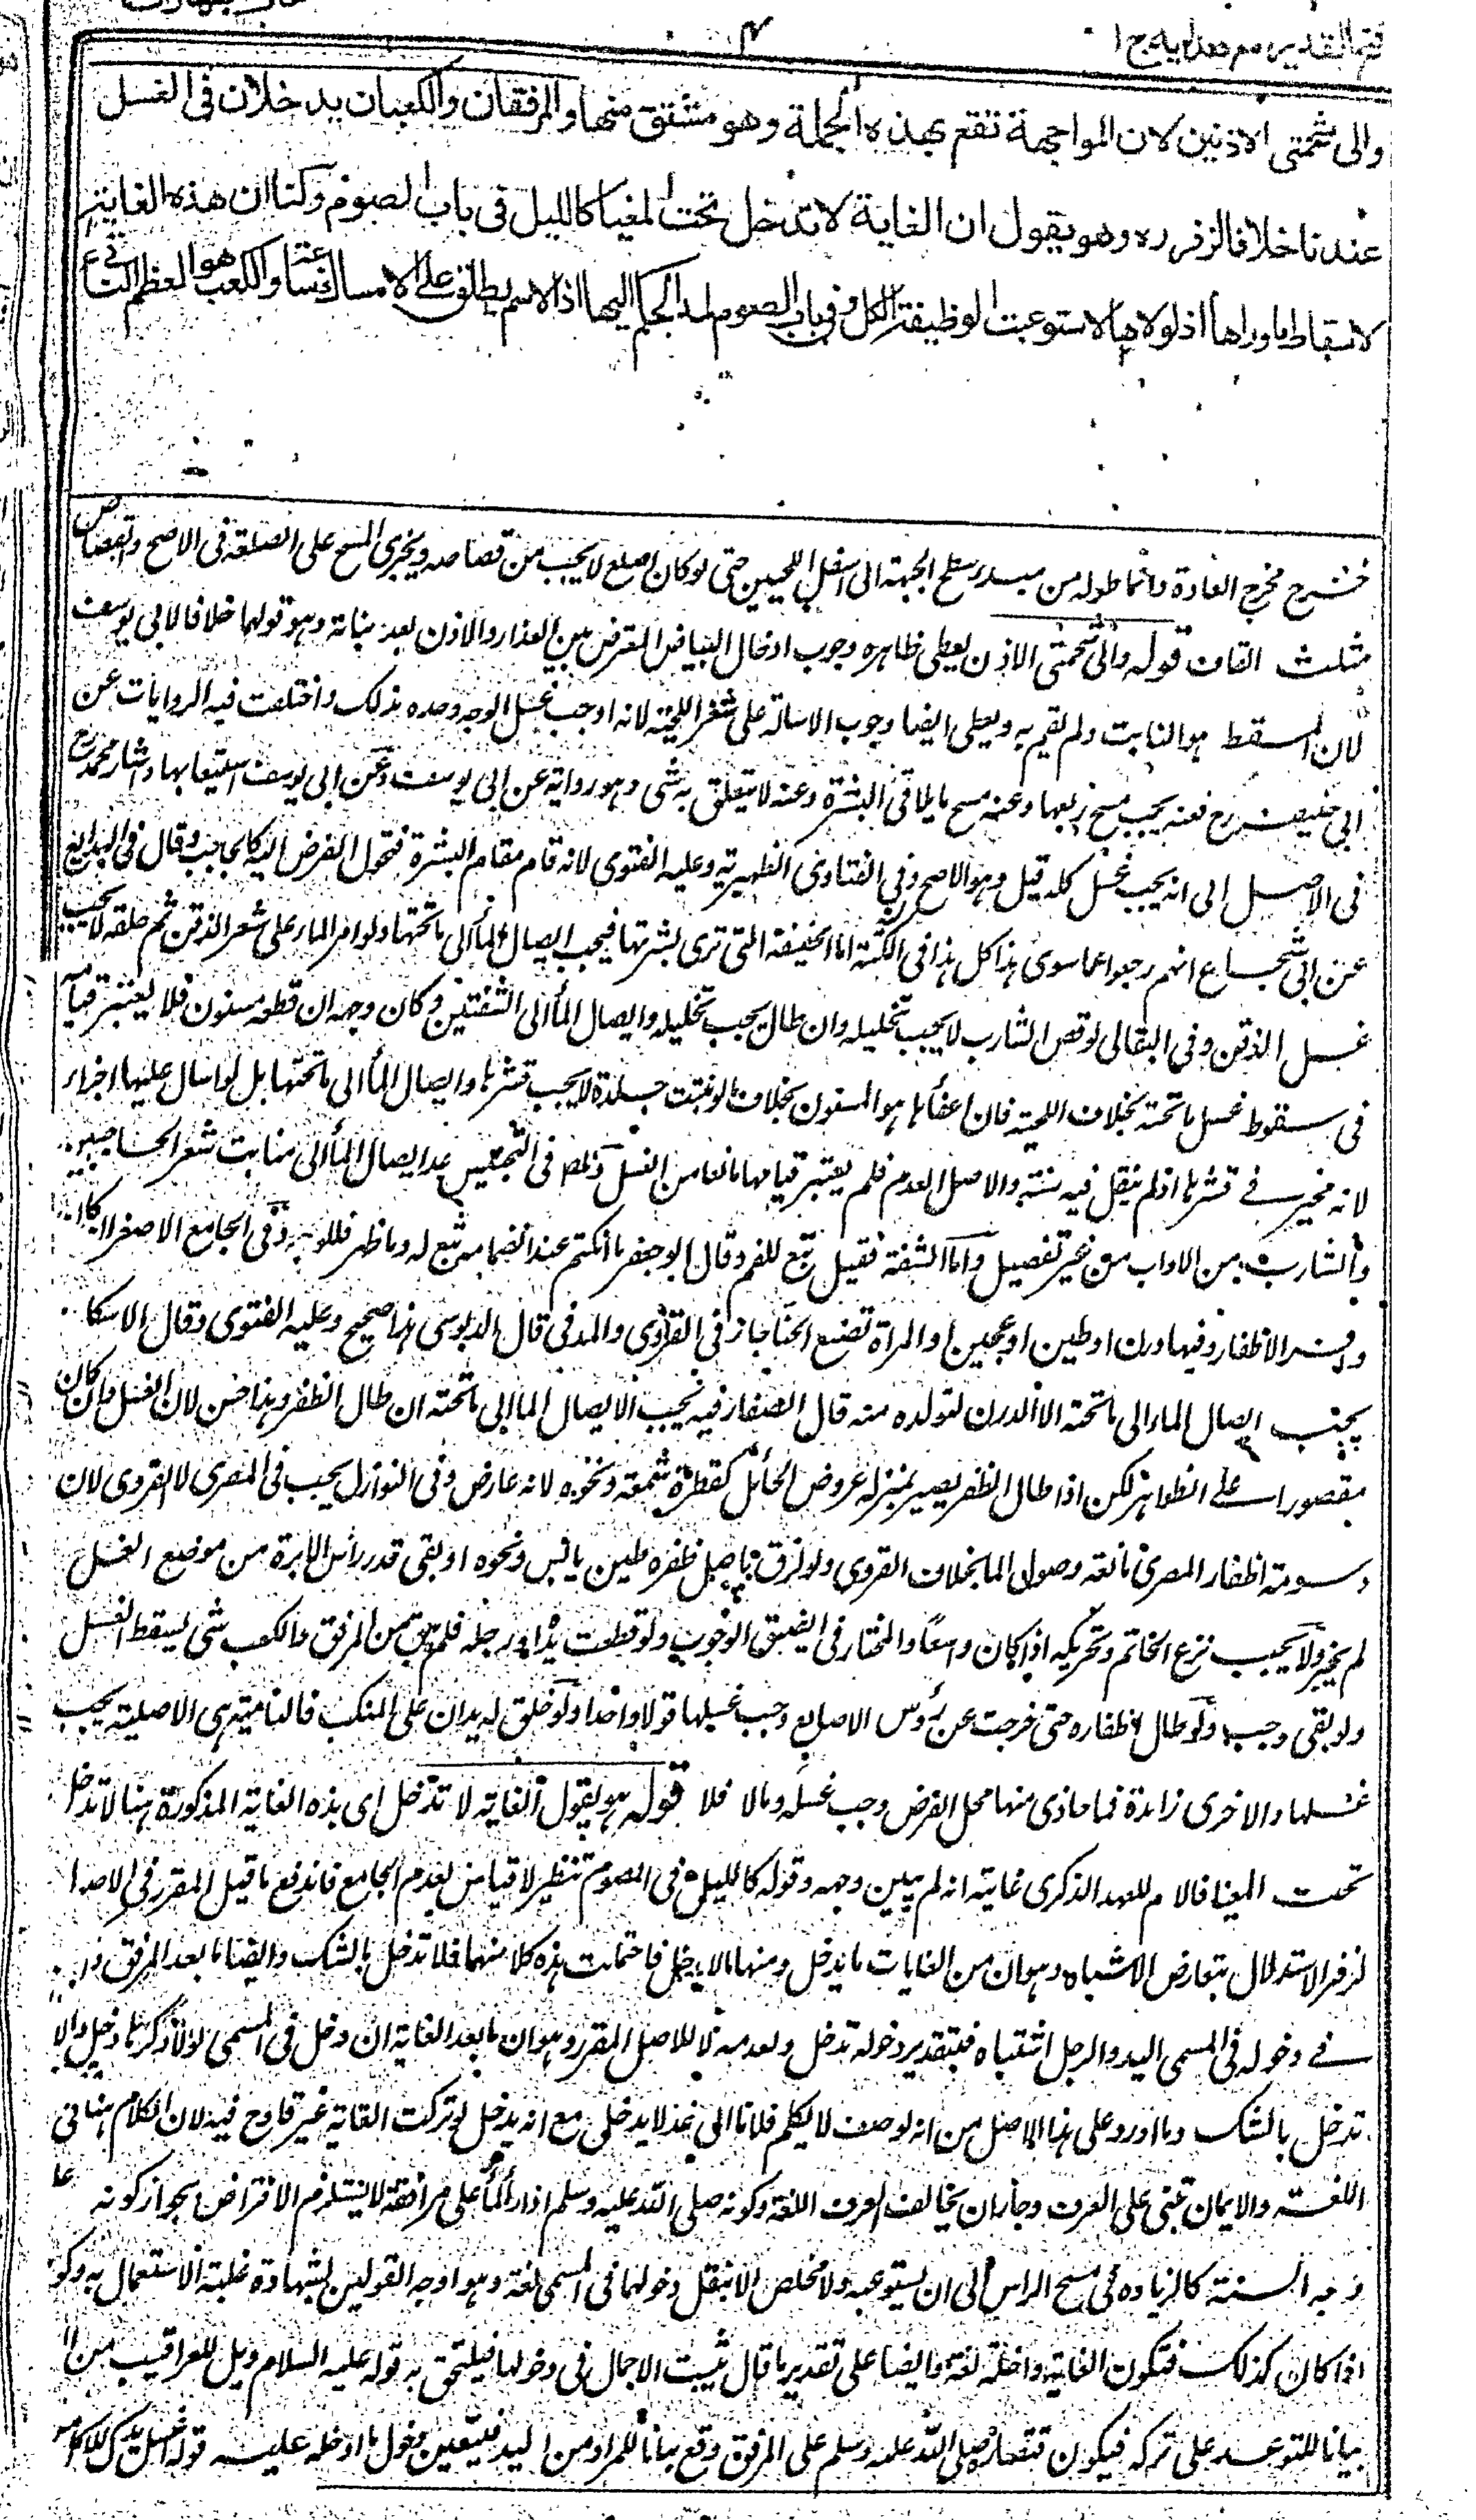 فتح القدير مع هدايه ج ا
٤
والى شحمتى الاذنين لان المواجهة تقع بهذه الجملة وهو مشتق منها والمرفقان والكعبان يدخلان فى الغسل
عندنا خلافا لزفر ره وهو يقول ان الغاية لا تدخل تحت المغيا كالليل فى باب الصوم ولنا ان هذه الغاية
لاسقاط ما وراها اذ لولاها لاستوعبت الوظيفة الكل وفى باب الصوم لمد الحكم اليها اذ الاسم يطلق على الامساك ساعة والكعب هو العظم الناتئ
خرج مخرج العادة وانما طوله من مبدء سطح الجبهة الى اسفل اللحيين حتى لو كان اصلع لا يجب من قصاصه ويجزى المسح على الصلعة فى الاصح والقصاص
مثلث القاف قوله والى شحمتى الاذن يعطى ظاهره وجوب ادخال البياض المعترض بين العذار والاذن بعد نباته وهو قولهما خلافا لابى يوسف
لان المسقط هو النابت ولم يقم به ويعطى ايضا وجوب الاسالة على شعر اللحية لانه اوجب غسل الوجه وحده بذلك واختلفت فيه الروايات عن
ابى حنيفة رح فعنه يجب مسح ربعها وعنه مسح ما يلاقى البشرة وعنه لا يتعلق به شى وهو رواية عن ابى يوسف وعن ابى يوسف استيعابها واشار محمد رح
فى الاصل الى انه يجب غسل كله قيل وهو الاصح وفى الفتاوى الظهيرية وعليه الفتوى لانه قام مقام البشرة فتحول الفرض اليه كالحاجب وقال فى البدايع
عن ابى شجاع انهم رجعوا عما سوى هذا كل هذا فى الكثة اما الخفيفة التى ترى بشرتها فيجب ايصال الماء الى ما تحتها ولو امر الماء على شعر الذقن ثم حلقه لا يجب
غسل الذقن وفى البقالى لو قص الشارب لا يجب تخليله وان طال يجب تخليله وايصال الماء الى الشفتين وكان وجهه ان قطعه مسنون فلا يعتبر قيامه
فى سقوط غسل ما تحته بخلاف اللحية فان اعفاءها هو المسنون بخلاف ما لو نبتت جلدة لا يجب قشرها وايصال الماء الى ما تحتها بل لو اسال عليها اجزاء
لانه مخير فى قشرها اذ لم ينقل فيه سنة والاصل العدم فلم يعتبر قيامها مانعا من الغسل وللمص فى التجنيس عد ايصال الماء الى منابت شعر الحاجبين
والشارب من الاداب من غير تفصيل واما الشفة فقيل تبع للفم وقال ابو جعفر ما انكتم عند انضمامه تبع له وما ظهر فللوجه وفى الجامع الاصغر ان كان
وفر الاظفار وفيها درن او طين او عجين او المراة تضع الحنا جاز فى القروى والمدنى قال الدبوسى هذا صحيح وعليه الفتوى وقال الاسكا
يجب ايصال الماء الى ما تحته الا الدرن لتولده منه قال الصفار فيه يجب الايصال الما الى ما تحته ان طال الظفر وهذا حسن لان الغسل وان كان
مقصورا على الظواهر لكن اذا طال الظفر يصير بمنزلة عروض الحائل كقطرة شمعة ونحوه لانه عارض وفى النوازل يجب فى المصرى لا القروى لان
دسومة اظفار المصرى مانعة وصول الما بخلاف القروى ولو لزق باصل ظفره طين يابس ونحوه او بقى قدر راس الابرة من موضع الغسل
لم يجز ولا يجب نزع الخاتم وتحريكه اذا كان واسعا والمختار فى الضيق الوجوب ولو قطعت يده او رجله فلم يبق من المرفق والكعب شى يسقط الغسل
ولو بقى وجب ولو طال اظفاره حتى خرجت عن رؤس الاصابع وجب غسلها قولا واحدا ولو خلق له يدان على المنكب فالتامة هى الاصلية يجب
غسلها والاخرى زايدة فما حاذى منها محل الفرض وجب غسله وما لا فلا قوله هو يقول الغاية لا تدخل اى هذه الغاية المذكورة هنا لا تدخل
تحت المغيا فالام للعهد الذكرى غايته انه لم يبين وجهه وقوله كالليل فى الصوم تنظير لا قياس لعدم الجامع فاندفع ما قيل المقرر فى الاصو
لزفر الاستدلال بتعارض الاشباه وهو ان من الغايات ما يدخل ومنها ما لا يدخل فاحتملت هذه كلا منهما فلا تدخل بالشك وايضا ما بعد المرفق
فى دخوله فى المسمى اليد والرجل اشتباه فبتقدير دخوله تدخل وبعدمه لا للاصل المقرر وهو ان ما بعد الغاية ان دخل فى المسمى لو لا ذكرها دخل والا
تدخل بالشك وما اورد على هذا الاصل من انه لو حلف لا يكلم فلانا الى غد لا يدخل مع انه يدخل لو تركت الغاية غير قادح فيه لان الكلام هنا فى
اللغة والايمان تبنى على العرف وجاز ان يخالف العرف اللغة وكونه صلى الله عليه وسلم ادار الماء على مرافقه لا يستلزم الافتراض بجواز كونه عا
وجه السنة كالزياده فى مسح الراس الى ان يستوعبه ولا مخلص الا بنقل دخولهما فى المسمى لغة وهو اوجه القولين بشهادة غلبة الاستعمال به وكو
اذا كان كذلك فتكون الغاية داخلة لغة وايضا على تقدير ما قال يثبت الاجمال فى دخولها فيلتحق به قوله عليه السلام ويل للعراقيب من ا
بيانا للتوعد على تركه فيكون صلى الله عليه وسلم على المرفق وقع بيانا للمراد من اليد فيتعين دخول ما ادخله عليه قوله